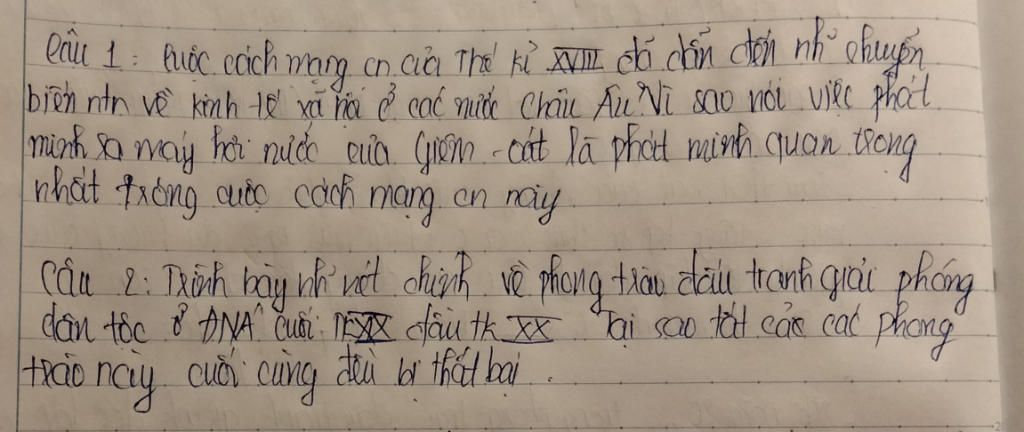 Câu 1: Cuộc cách mạng cn của Thế kỉ XVIII đã dẫn đến nh~ chuyển
biến ntn về kinh tế xã hội ở các nước Châu Âu? Vì sao nói việc phát
minh ra máy hơi nước của Giêm-oát là phát minh quan trọng
nhất trong cuộc cách mạng cn này
Câu 2: Trình bày nh~ nét chính về phong trào đấu tranh giải phóng
dân tộc ở ĐNA cuối đầu tk XX Tại sao tất cả các phong
trào này cuối cùng đều bị thất bại.